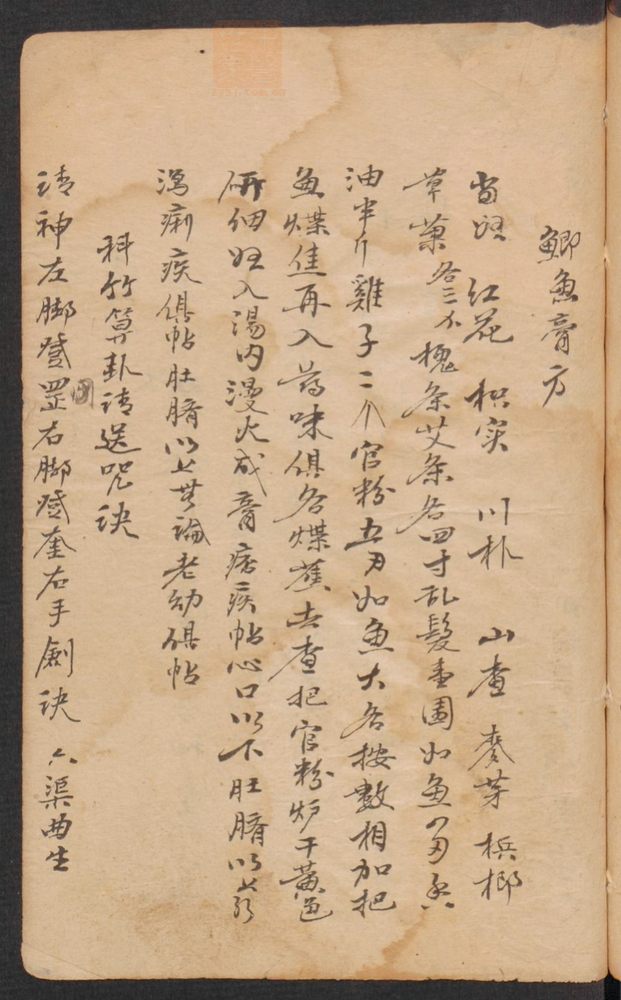 鯽魚膏方
当归 红花 枳实 川朴 山查 麦芽 槟榔
草菓各三个槐条艾条各四寸乱髮壹團如魚
油半斤雞子二个官粉五刃如魚大各按數相加把
魚煠焦再入葯味俱各煠蕉去查把官粉炒干黄色
研细妊入湯内漫火成膏痞疾帖心口以下肚臍以上
瀉痢疾俱帖肚臍以上無論老幼俱帖
科竹算卦请送咒诀
请神左脚登罡右脚登奎右手劍诀 六渠曲生